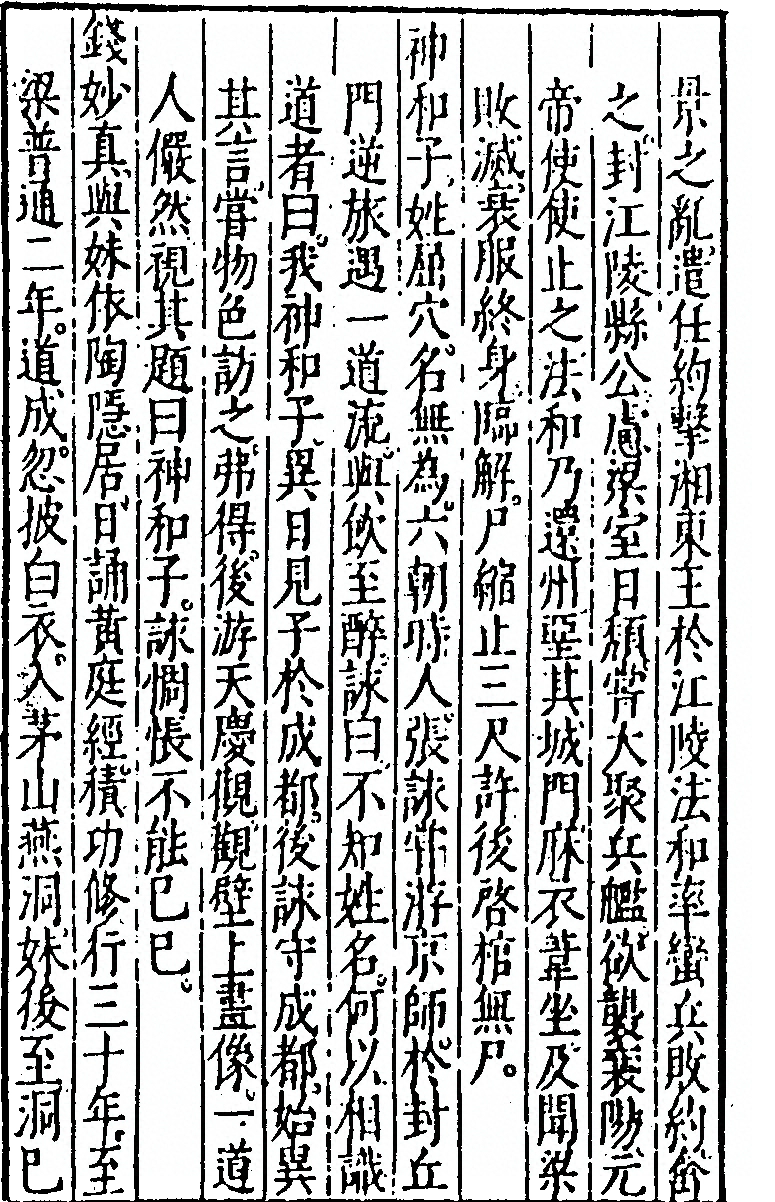 景之亂遣任約擊湘東王於江陵法和率蠻兵敗約爵
之封江陵縣公慮梁室日頹嘗大聚兵艦欲襲襄陽元
帝使使止之法和乃還州堊其城門麻衣葦坐及聞梁
敗滅衰服終身臨解尸縮止三尺許後啓棺無尸。
神和子姓屈穴名無為六朝時人張詠常游京師於封丘
門逆旅遇一道流與飲至醉詠曰不知姓名何以相識
道者曰我神和子異日見子於成都後詠守成都始異
其言嘗物色訪之弗得後游天慶觀觀壁上畫像一道
人儼然視其題曰神和子詠惆悵不能已已。
錢妙真與妹依陶隱居日誦黃庭經積功修行三十年至
梁普通二年。道成忽披白衣入茅山燕洞妹後至洞已